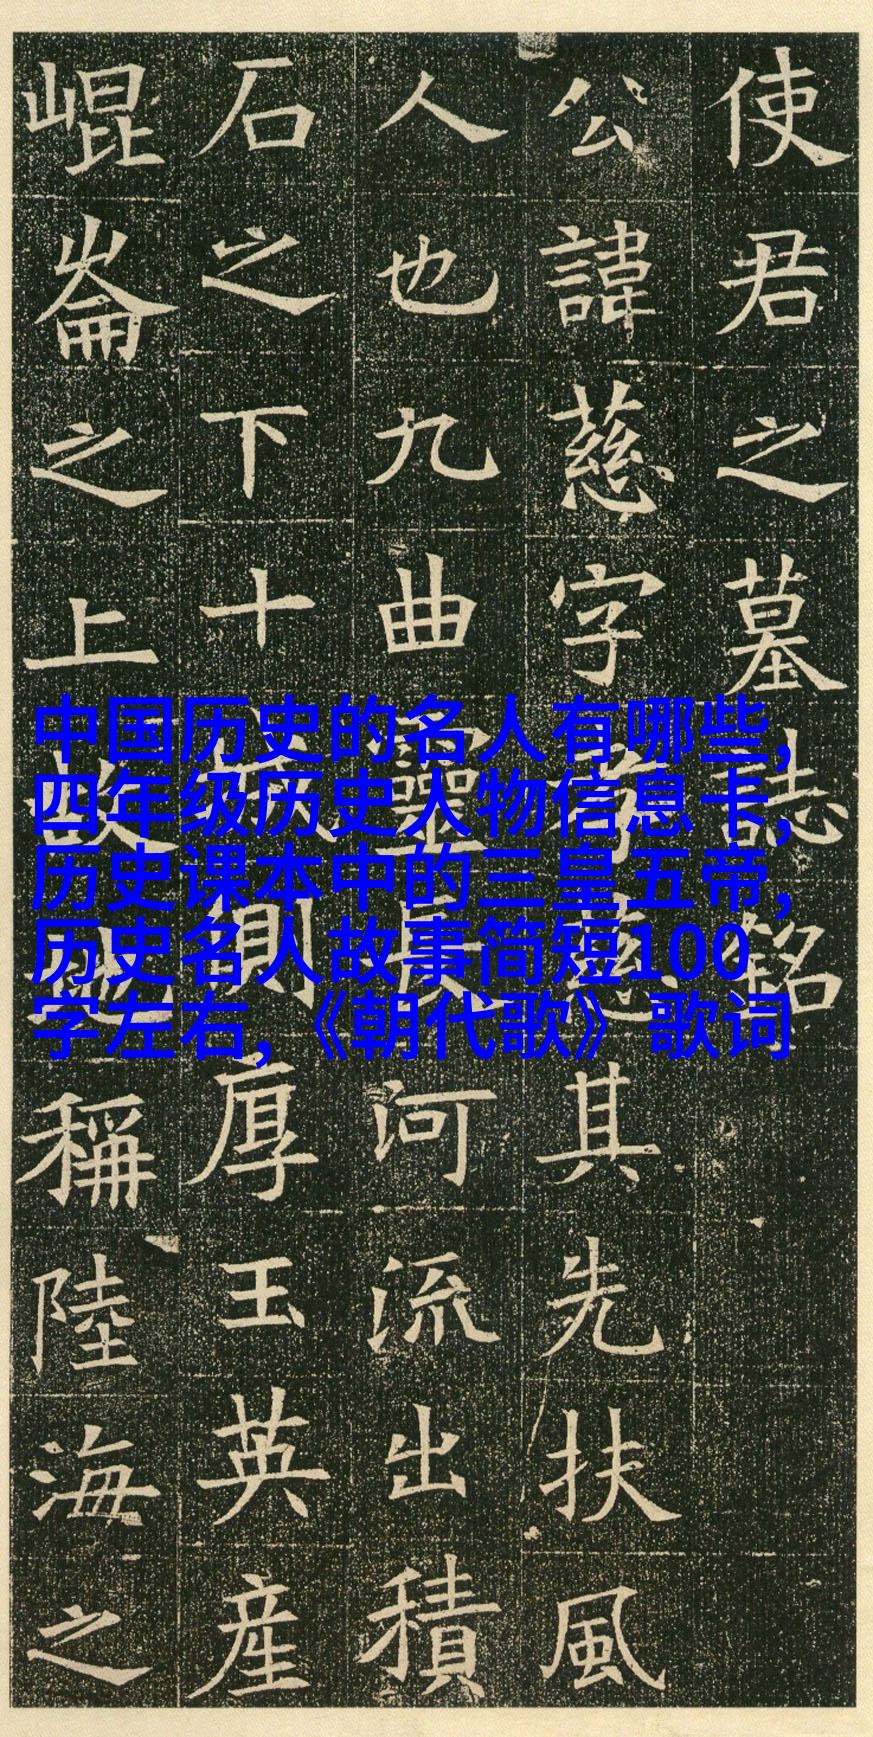 使君之墓誌銘
公諱慈字孝慈其先扶風
人也九曲靈長河流出積
石之下十厚玉英産
崐崘之上故地稱陸海之
中国历史的名人有哪些,
四年级历史人物信息卡,
历史课本中的三皇五帝,
历史名人故事简短100
字左右,《朝代歌》歌词